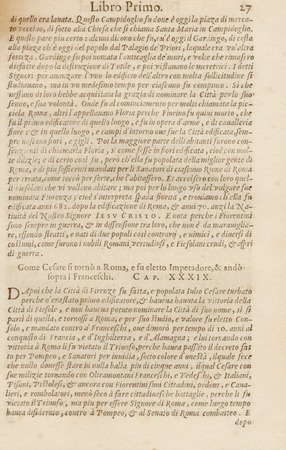 Libro Primo. 27
di quello era lanata. Questo Campidoglio fu doue è oggi la piazza di merca-
to vecchio, di sotto alla Chiesa che si chiama Santa Maria in Campidoglio.
E questo pare piu certo: alcuni dicono che fu, ou'è oggi il Garingo, di costa
alla piazza ch'è oggi del popolo dal Palagio de Priori, laquale era vn'altra
fortezza. Garingo fu poi nomata l'anticaglia de muri, e volte che rimasero
disfatte dopo la distruzione di Totile, e poi v'istauano le meretrici. I detti
Signori per auanzare l'vno lo edificio dell'altro con molta sollicitudine si
studiauano, ma in vn medesimo tempo per ciascuno fu compiuto. Sì che
nessuno di loro hebbe acquistata la grazia di nominare la Città per lo suo
senno, e sua volontà. Onde fu al cominciamento per molti chiamata la pic-
ciola Roma, altri l'appellauano Floria perche Fiorino fu quiui morto, che
fu il primo edificatore di quello luogo, e fu in opera d'arme, e di caualleria
fiore: & in quello luogo, e campi d'intorno oue fu la Città edificata sem-
pre nasceano fiori, e gigli. Poi la maggiore parte delli abitanti furono con-
senzienti di chiamarla Floria, sì come fosse in fiori edificata, cioè con mol-
te dilizie; e di certo così fu, però ch'ella fu popolata della miglior gente di
Roma, e de piu sofficienti mandati per li Sanatori di ciascuno Rione di Roma
per errata, come tocco per sorte, che l'abitasseno. Et accolsero con loro quel-
li Fiesolani che vi vollono abitare; ma poi per lo lungo vso del volgare fue
nominata Fiorenza; cioè s'interpreta spada fiorita, e trouiamo ch'ella fu
edificata anni 682. dopo la edificazione di Roma, & anni 70. anzi la Na-
tiuità del Nostro Signore IESV CRISTO. E nota perche i Fiorentini
sono sempre in guerra, & in dissensione tra loro, che non è da marauiglia-
re, essendo stratti, e nati di due popoli così contrarj, e nimici, e diuersi di
costumi, come furono i nobili Romani vertudiosi, e Fiesolani crudi, & aspri
di guerra.
Come Cesare si tornò a Roma, e fu eletto Imperadore, & andò
sopra i Franceschi. CAP. XXXIX.
DApoi che la Città di Firenze fu fatta, e popolata Iulio Cesare turbato
perche n'era stato primo edificatore, & haueua hauuta la vittoria della
Città di Fiesole, e non haueua potuto nominare la Città di suo nome, si si
partì di quella, e tornossi a Roma, e per suo studio, e valore fu eletto Con-
solo, e mandato contro a' Franceschi, oue dimorò per tempo di 10. anni al
conquisto di Francia, e d'Inghilterra, e d'Alamagna; e lui tornando con
vittoria à Roma li fu vietato il Triunfo, perche haueua passato il decreto fat-
to per Pompeo, e Sanatori per inuidia, sotto colore d'onestà, ilquale fece
che nullo douesse stare in nulla balia piu di cinque anni, il qual Cesare con
sue milizie tornando con Oltramontani Franceschi, e Tedeschi, & Italiani,
Pisani, Pistolesi, & ancora con Fiorentini suoi Cittadini, pedoni, e Caua-
lieri, e rombolatori, menò seco à fare cittadinesche battaglie, perche li fu
vietato il Triunfo, ma piu per essere Signore di Roma, come lungo tempo
hauea disiderato, contro à Pompeo, & al Senato di Roma combatteo. E
dopo